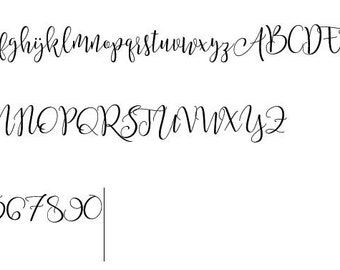 fghijklmnopqrstuvwxyzABCDE
NOPQRSTUVWXYZ
67890